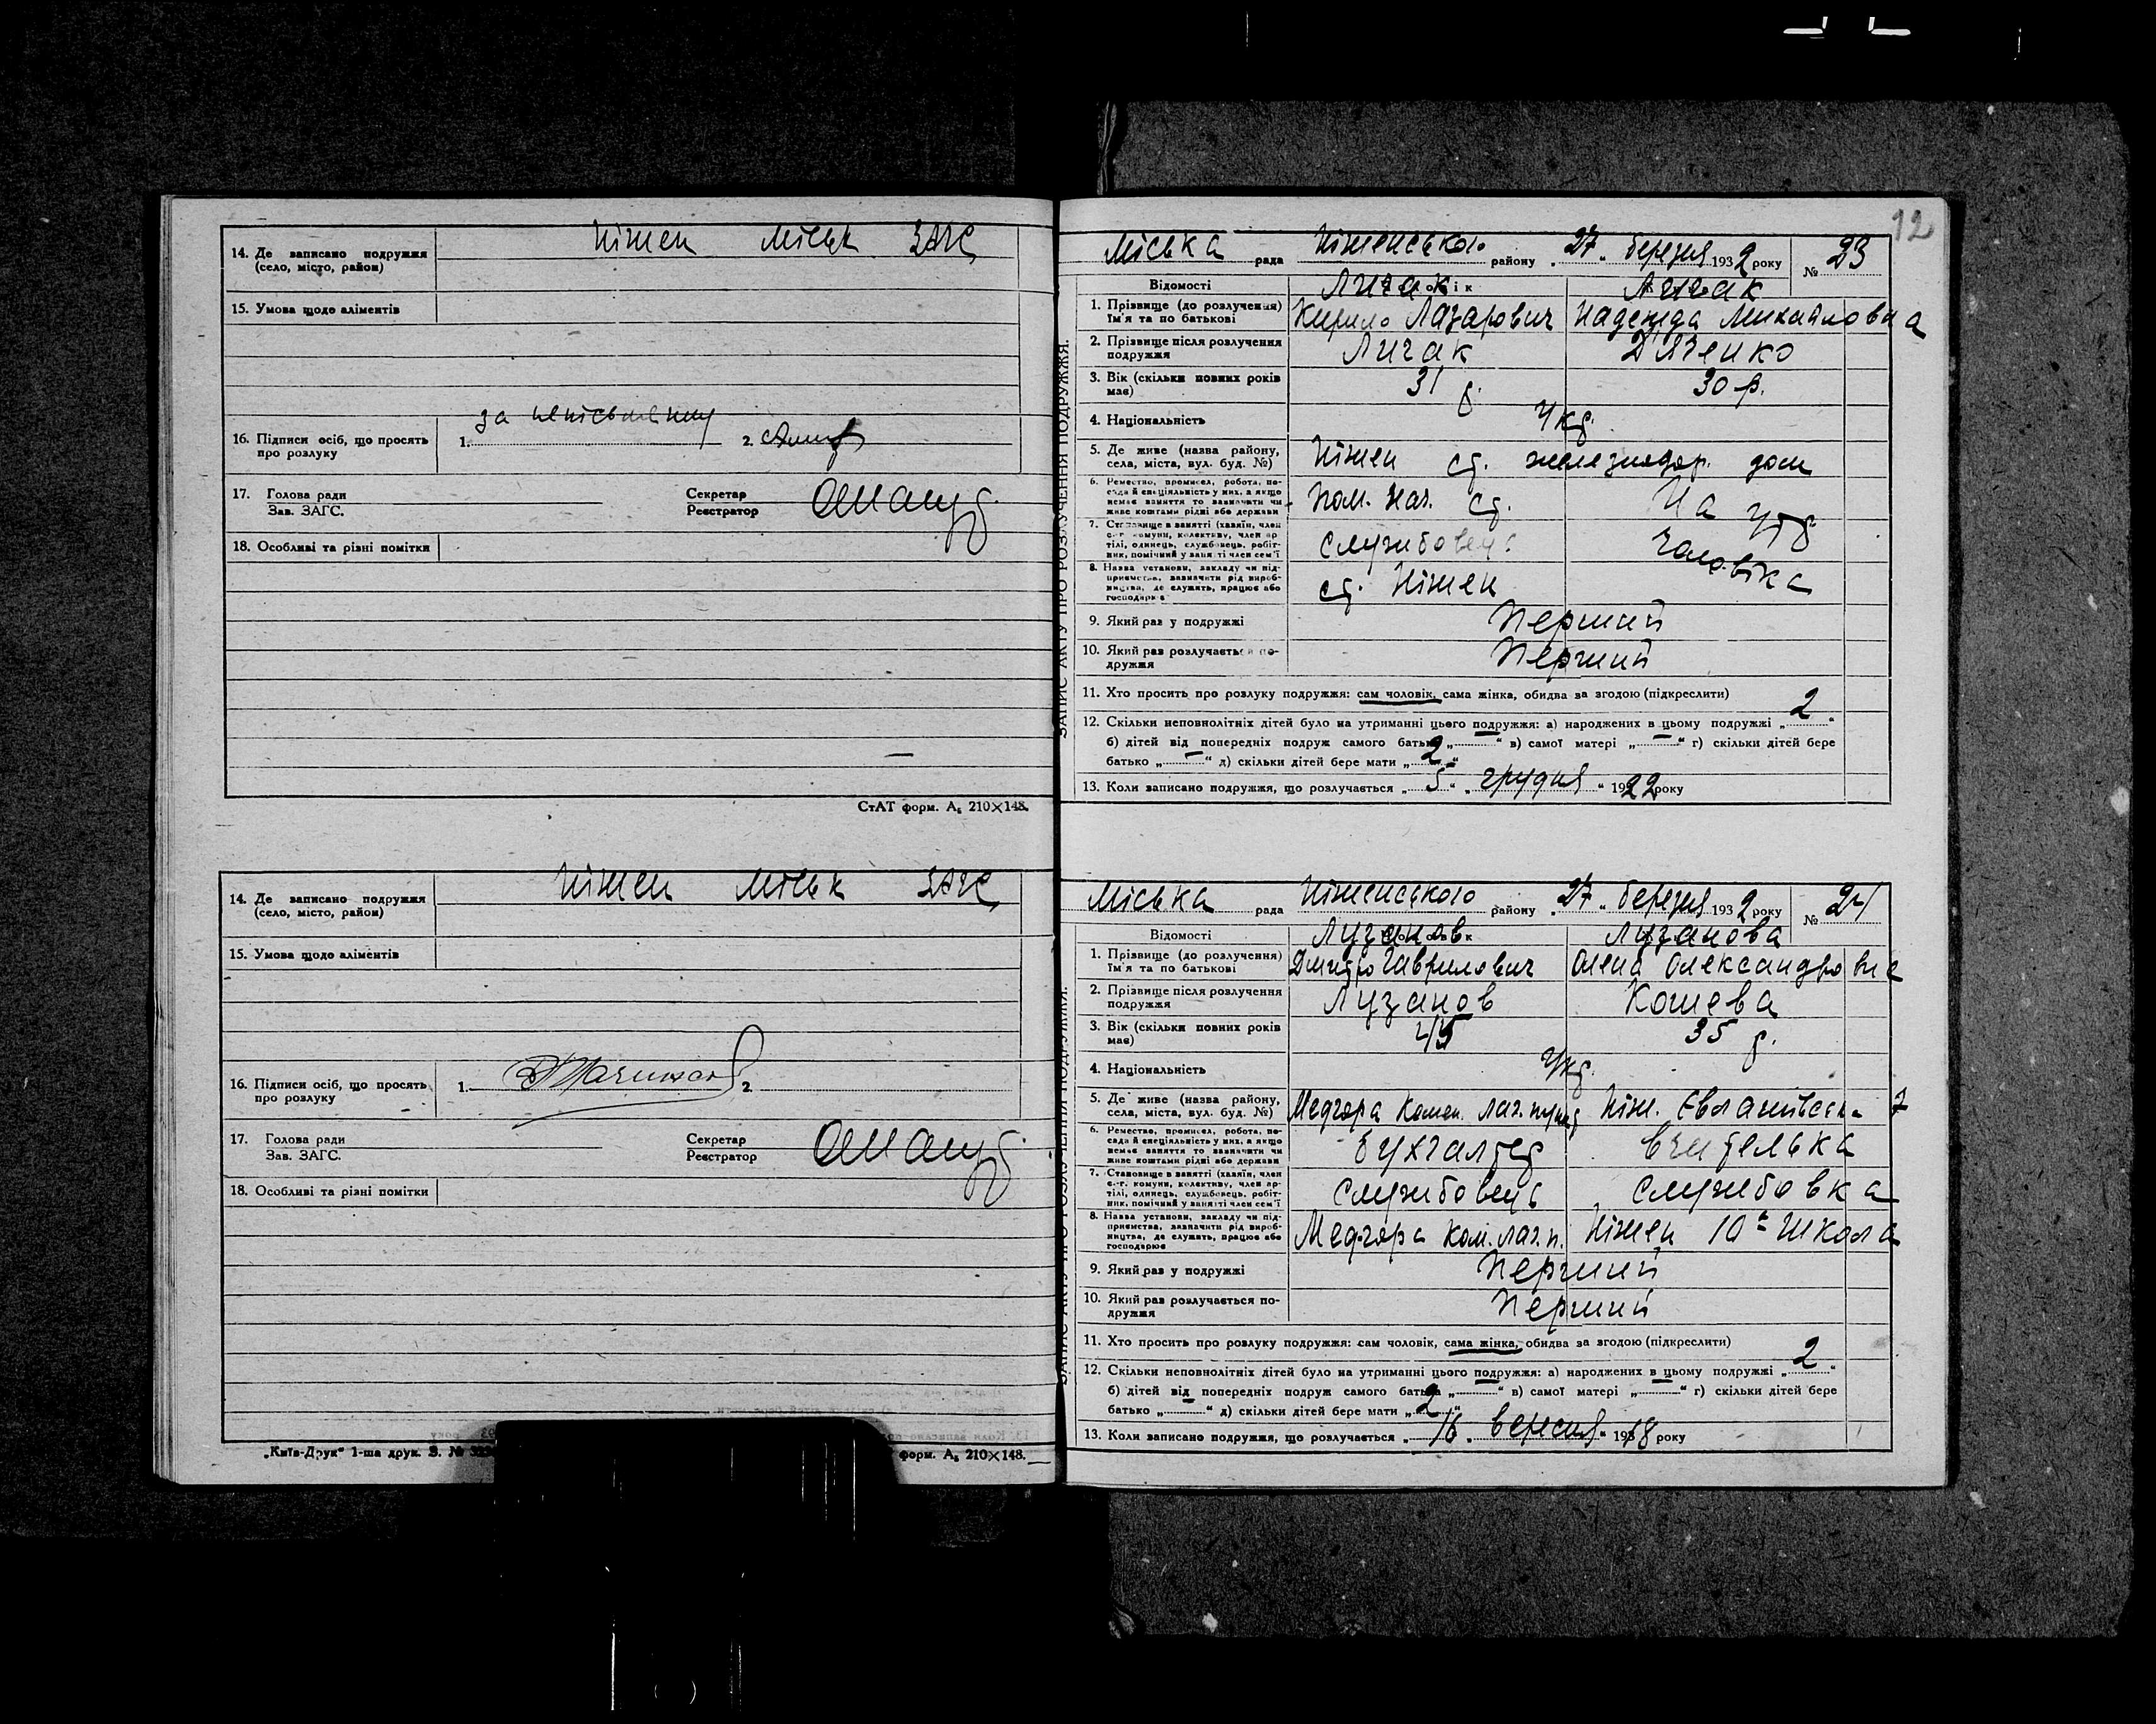 14. Де записано подружжя
(село, місто, район)
Ніжен міськ ЗАГС
15. Умова щодо аліментів
16. Підписи осіб, що просять
про розлуку
1. за неписьменну 2.
17. Голова ради
Зав. ЗАГС.
Секретар
Реєстратор
18. Особливі та різні помітки
СтАТ форм. А₅ 210×148.
14. Де записано подружжя
(село, місто, район)
Ніжен міськ ЗАГС
15. Умова щодо аліментів
16. Підписи осіб, що просять
про розлуку
1. 2.
17. Голова ради
Зав. ЗАГС.
Секретар
Реєстратор
18. Особливі та різні помітки
„Київ-Друк“ 1-ша друк. З. №
форм. А₅ 210×148.
12
ЗАПИС АКТУ ПРО РОЗЛУЧЕННЯ ПОДРУЖЖЯ.
Міська рада Ніженського району „27„ березня 1932 року № 23
Відомості
1. Прізвище (до розлучення)
Ім'я та по батькові
Личак
Кирило Лазарович
Личак
Надежда Михайловна
2. Прізвище після розлучення
подружжя
Личак Дяченко
3. Вік (скільки повних років
має)
31 р. 30 р.
4. Національність Укр.
5. Де живе (назва району,
села, міста, вул. буд. №)
Ніжен ст. железнодор. дом
6. Ремество, промисел, робота, по-
сада й спеціяльність у них, а якщо
немає заняття то зазначити чи
живе коштами рідні або держави
Пом. Нач. ст. На утр
7. Становище в занятті (хазяїн, член
с.-г. комуни, колективу, член ар-
тілі, одинець, службовець, робіт-
ник, помічний у занятті член сем'ї
Службовець чоловіка
8. Назва установи, закладу чи під-
приємства, зазначити рід вироб-
ництва, де служить, працює або
господарює
ст. Ніжен
9. Який раз у подружжі Перший
10. Який раз розлучається по-
дружжя
Перший
11. Хто просить про розлуку подружжя: сам чоловік, сама жінка, обидва за згодою (підкреслити)
12. Скільки неповнолітніх дітей було на утриманні цього подружжя: а) народжених в цьому подружжі „2“
б) дітей від попередніх подруж самого батька „—“ в) самої матері „—“ г) скільки дітей бере
батько „—“ д) скільки дітей бере мати „2“
13. Коли записано подружжя, що розлучається „5“ „грудня“ 1922 року
ЗАПИС АКТУ ПРО РОЗЛУЧЕННЯ ПОДРУЖЖЯ.
Міська рада Ніженського району „27„ березня 1932 року № 24
Відомості
1. Прізвище (до розлучення)
Ім'я та по батькові
Лузанов
Дмитро Гаврилович
Лузанова
Олена Олександровне
2. Прізвище після розлучення
подружжя
Лузанов Кошева
3. Вік (скільки повних років
має)
45 35 р.
4. Національність Укр.
5. Де живе (назва району,
села, міста, вул. буд. №)
Медгора Комен. лаг. пункт Ніж. Євлашівська 7
6. Ремество, промисел, робота, по-
сада й спеціяльність у них, а якщо
немає заняття то зазначити чи
живе коштами рідні або держави
Бухгалтер Вчителька
7. Становище в занятті (хазяїн, член
с.-г. комуни, колективу, член ар-
тілі, одинець, службовець, робіт-
ник, помічний у занятті член сем'ї
Службовець Службовка
8. Назва установи, закладу чи під-
приємства, зазначити рід вироб-
ництва, де служить, працює або
господарює
Медгора Ком. лаг. п. Ніжен 10а школа
9. Який раз у подружжі Перший
10. Який раз розлучається по-
дружжя
Перший
11. Хто просить про розлуку подружжя: сам чоловік, сама жінка, обидва за згодою (підкреслити)
12. Скільки неповнолітніх дітей було на утриманні цього подружжя: а) народжених в цьому подружжі „2“
б) дітей від попередніх подруж самого батька „—“ в) самої матері „—“ г) скільки дітей бере
батько „—“ д) скільки дітей бере мати „2“
13. Коли записано подружжя, що розлучається „16„ вересня“ 1918 року